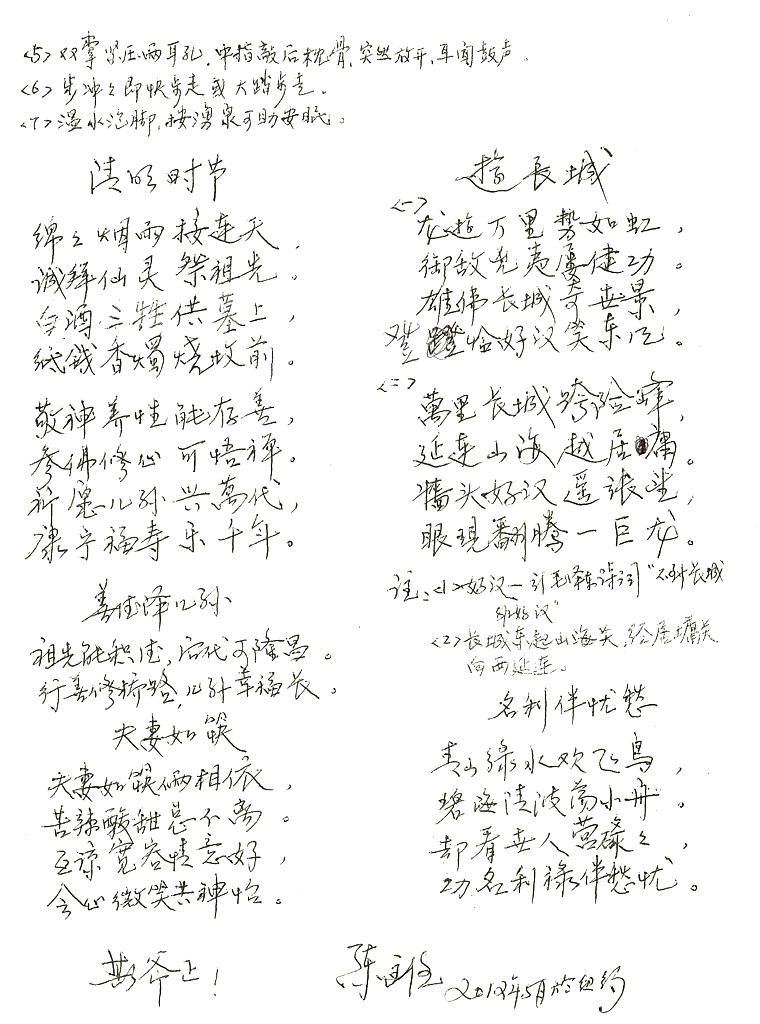 <5>双掌紧压两耳孔,中指敲后枕骨,突然放开,耳闻鼓声。
<6>步冲々即快步走或大踏步走。
<7>温水泡脚,按湧泉可助安眠。
清明时节
绵々烟雨接连天,
诚拜仙灵祭祖先。
白酒三牲供墓上,
纸錢香燭烧坟前。
敬神养性能存善,
参佛修心可悟禅。
祈愿儿孙兴萬代,
康宁福寿乐千年。
善德泽儿孙
祖先能积德,后代可隆昌。
行善修桥路,儿孙幸福长。
夫妻如筷
夫妻如筷俩相依,
苦辣酸甜总不离。
互谅宽容情意好,
会心微笑共神怡。
长城
<一>
龙 万里势如虹,
御敌 夷屡健功。
雄佛长城奇世景,
登 恰好汉笑东风。
<二>
萬里长城跨险峰,
延连山海越居庸。
墙头好汉遥張望,
眼現翻腾一巨龙。
注:<1>好汉—引毛泽东诗词“不到长城
非好汉”
<2>长城东起山海关,经居墉关
向西延连。
名利伴忧愁
青山绿水欢飞鸟,
碧海清波荡小舟。
却看世人营碌々,
功名利禄伴愁忧。
斯斧正!
陈
2012年5月於纽约